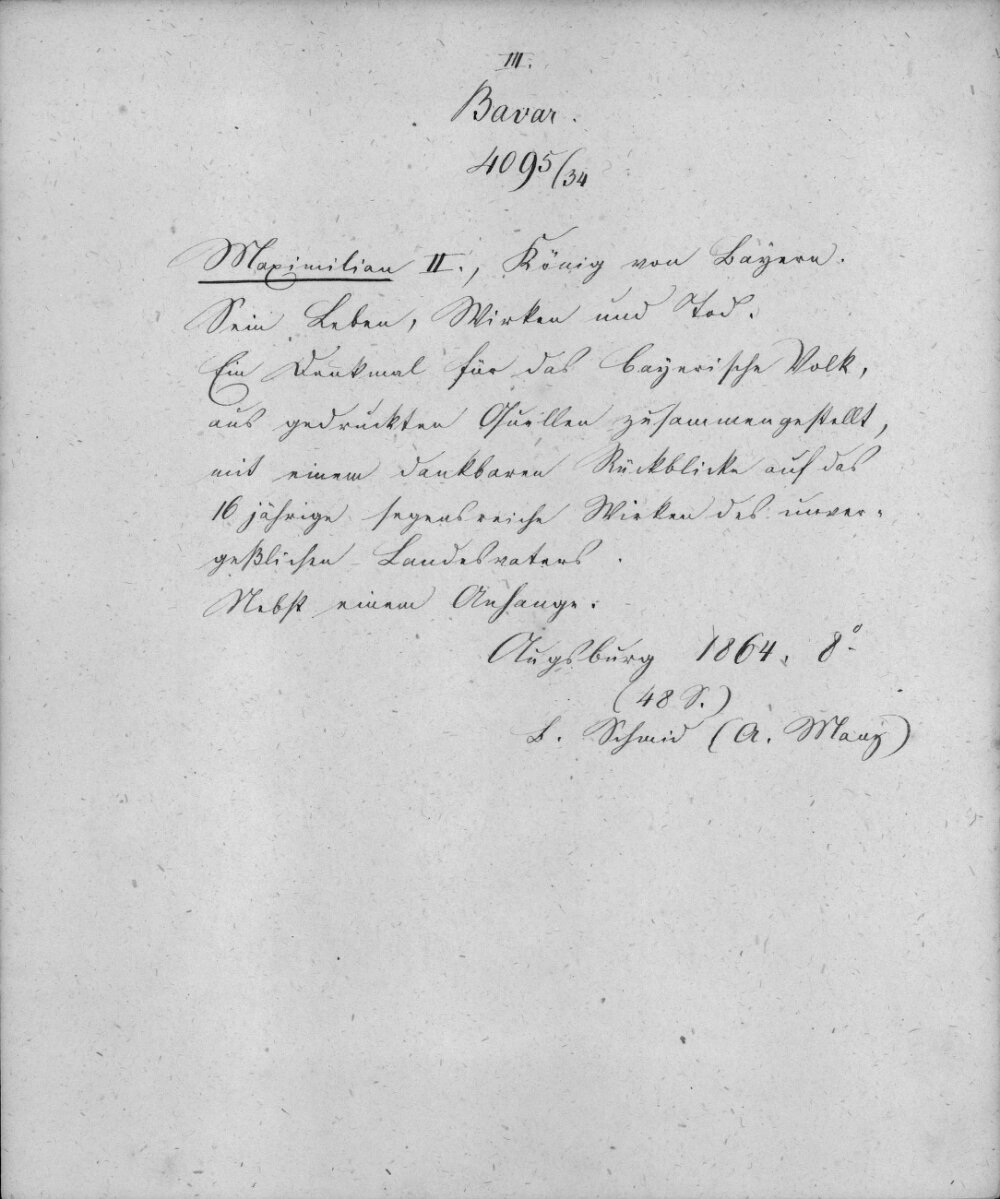 III.
Bavar.
4095/34
Maximilian II., König von Bayern.
Sein Leben, Wirken und Tod.
Ein Denkmal für das bayerische Volk,
aus gedruckten Quellen zusammengestellt,
mit einem dankbaren Rückblicke auf das
16 jährige segensreiche Wirken des unver-
geßlichen Landesvaters.
Nebst einem Anhange.
Augsburg 1864. 8°.
(48 S.)
B. Schmid (A. Manz)